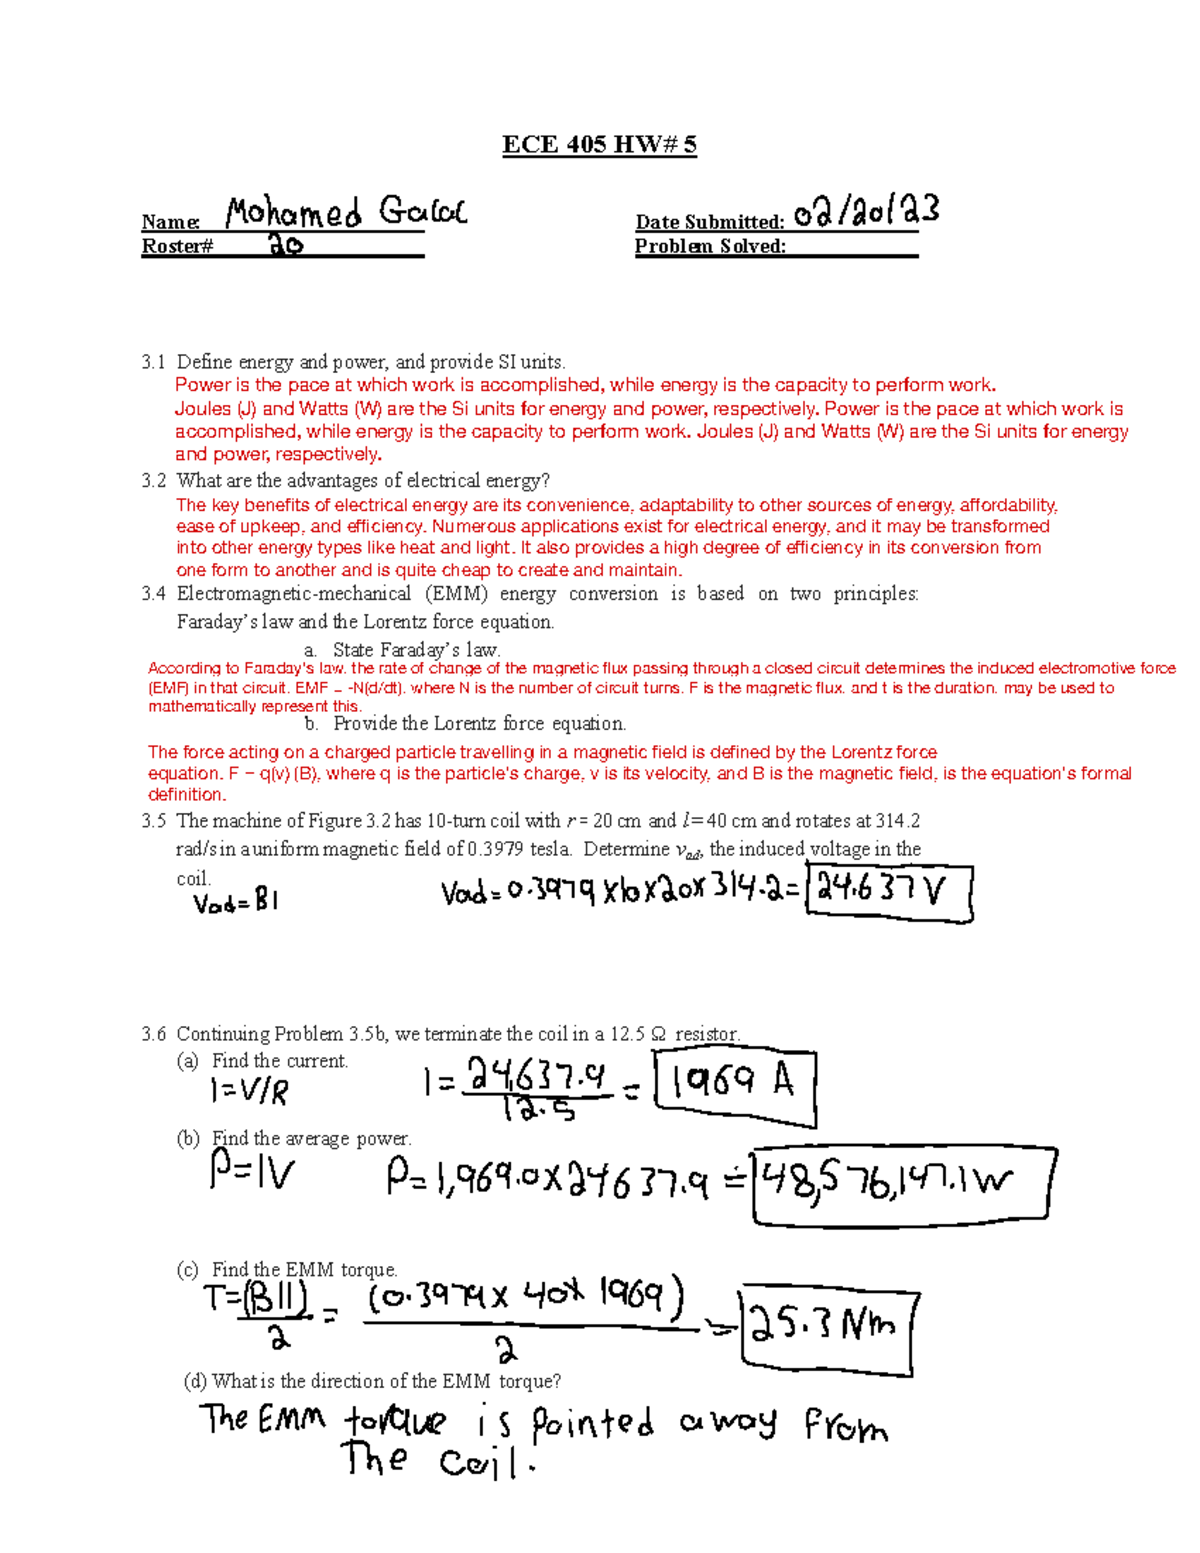 ECE 405 HW# 5
Name: Mohamed Galal Date Submitted: 02/20/23
Roster# 20 Problem Solved:
3.1 Define energy and power, and provide SI units.
Power is the pace at which work is accomplished, while energy is the capacity to perform work.
Joules (J) and Watts (W) are the Si units for energy and power, respectively. Power is the pace at which work is
accomplished, while energy is the capacity to perform work. Joules (J) and Watts (W) are the Si units for energy
and power, respectively.
3.2 What are the advantages of electrical energy?
The key benefits of electrical energy are its convenience, adaptability to other sources of energy, affordability,
ease of upkeep, and efficiency. Numerous applications exist for electrical energy, and it may be transformed
into other energy types like heat and light. It also provides a high degree of efficiency in its conversion from
one form to another and is quite cheap to create and maintain.
3.4 Electromagnetic-mechanical (EMM) energy conversion is based on two principles:
Faraday's law and the Lorentz force equation.
a. State Faraday's law.
According to Faraday's law. the rate of change of the magnetic flux passing through a closed circuit determines the induced electromotive force
(EMF) in that circuit. EMF = -N(d/dt). where N is the number of circuit turns. F is the magnetic flux. and t is the duration. may be used to
mathematically represent this.
b. Provide the Lorentz force equation.
The force acting on a charged particle travelling in a magnetic field is defined by the Lorentz force
equation. F = q(v) (B), where q is the particle's charge, v is its velocity, and B is the magnetic field, is the equation's formal
definition.
3.5 The machine of Figure 3.2 has 10-turn coil with r = 20 cm and l = 40 cm and rotates at 314.2
rad/s in a uniform magnetic field of 0.3979 tesla. Determine vad, the induced voltage in the
coil.
Vad = Bl Vad = 0.3979 x 10 x 20 x 314.2 = 24.637 V
3.6 Continuing Problem 3.5b, we terminate the coil in a 12.5 Ω resistor.
(a) Find the current.
I = V/R I = 24,637.9 / 12.5 = 1969 A
(b) Find the average power.
P = IV P = 1,969.0 x 24637.9 = 48,576,147.1 W
(c) Find the EMM torque.
T = (BIl) / 2 = (0.3979 x 40 x 1969) / 2 = 25.3 Nm
(d) What is the direction of the EMM torque?
The EMM torque is pointed away from
The coil.